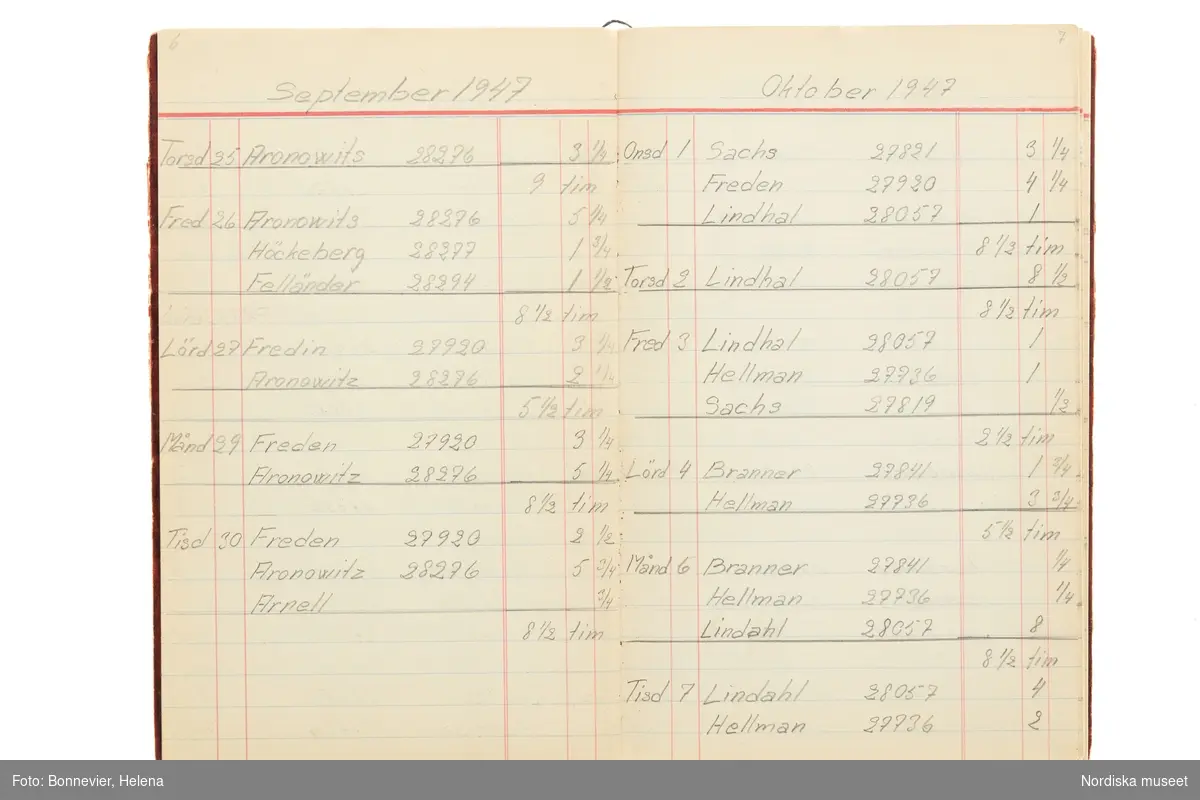 6
September 1947
Torsd 25 Aronowits 28276 3 1/4
9 tim
Fred 26 Aronowits 28276 5 1/4
Höckeberg 28277 1 3/4
Felländer 28294 1 1/2
8 1/2 tim
Lörd 27 Fredin 27920 3 1/4
Aronowitz 28276 2 1/4
5 1/2 tim
Månd 29 Freden 27920 3 1/4
Aronowitz 28276 5 1/4
8 1/2 tim
Tisd 30 Freden 27920 2 1/2
Aronowitz 28276 5 3/4
Arnell 3/4
8 1/2 tim
7
Oktober 1947
Onsd 1 Sachs 27821 3 1/4
Freden 27920 4 1/4
Lindhal 28057 1
8 1/2 tim
Torsd 2 Lindhal 28057 8 1/2
8 1/2 tim
Fred 3 Lindhal 28057 1
Hellman 27736 1
Sachs 27819 1/2
2 1/2 tim
Lörd 4 Branner 27841 1 3/4
Hellman 27736 3 3/4
5 1/2 tim
Månd 6 Branner 27841 1/4
Hellman 27736 1/4
Lindahl 28057 8
8 1/2 tim
Tisd 7 Lindahl 28057 4
Hellman 27736 2
Foto: Bonnevier, Helena
Nordiska museet